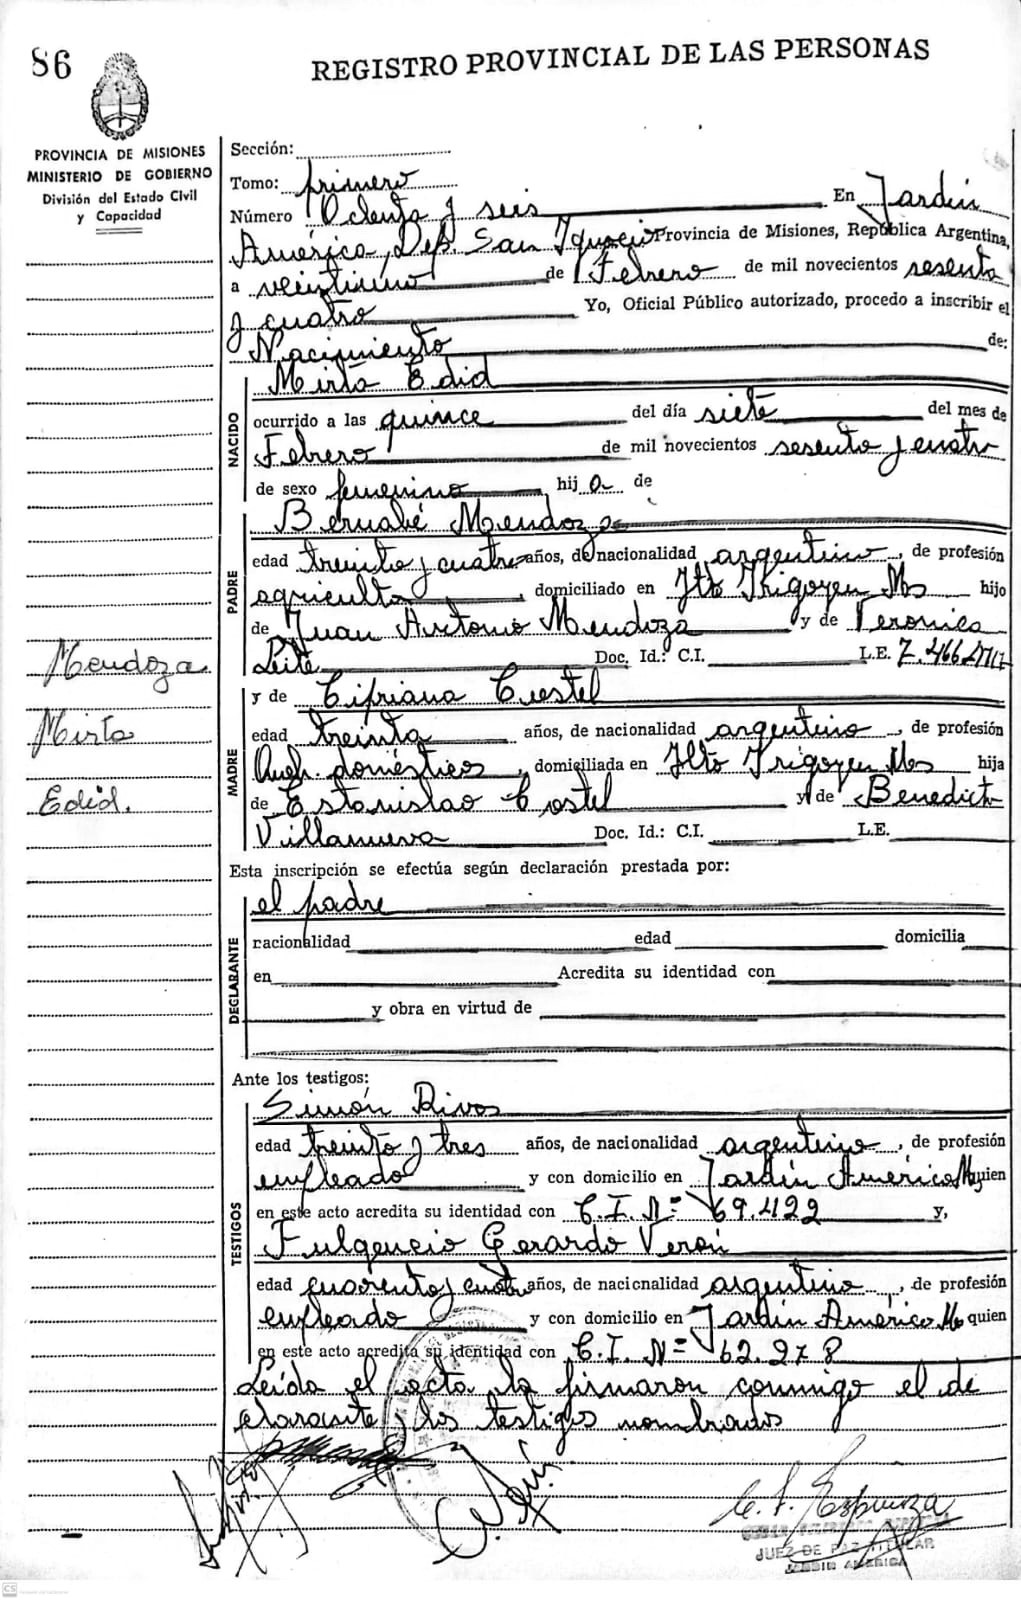 86
REGISTRO PROVINCIAL DE LAS PERSONAS
PROVINCIA DE MISIONES
MINISTERIO DE GOBIERNO
División del Estado Civil
y Capacidad
Sección:
Tomo: primero
Número Ochenta y seis En Jardín
América, Dep. San Ignacio Provincia de Misiones, República Argentina,
a veintiuno de Febrero de mil novecientos sesenta
y cuatro Yo, Oficial Público autorizado, procedo a inscribir el
Nacimiento de:
NACIDO
Mirta Edid
ocurrido a las quince del día siete del mes de
Febrero de mil novecientos sesenta y cuatro
de sexo femenino hij a de
PADRE
Bernabé Mendoza
edad treinta y cuatro años, de nacionalidad argentino, de profesión
agricultor, domiciliado en Hto Irigoyen Ms hijo
de Juan Antonio Mendoza y de Veronica
Leite Doc. Id.: C.I. L.E. 7.466.
Mendoza
Mirta
Edid.
MADRE
y de Cipriana Costel
edad treinta años, de nacionalidad argentino, de profesión
Queh. domésticos, domiciliada en Hto Irigoyen Ms hija
de Estanislao Costel y de Benedicta
Villanueva Doc. Id.: C.I. L.E.
Esta inscripción se efectúa según declaración prestada por:
DECLARANTE
el padre
racionalidad edad domicilia
en Acredita su identidad con
y obra en virtud de
Ante los testigos:
TESTIGOS
Simón Rivos
edad treinta y tres años, de nacionalidad argentino, de profesión
empleado y con domicilio en Jardín América Ms quien
en este acto acredita su identidad con C.I. Nº 69.422 y,
Fulgencio Gerardo Veron
edad cuarenta y cuatro años, de nacionalidad argentino, de profesión
empleado y con domicilio en Jardín América Ms quien
en este acto acredita su identidad con C.I. Nº 62.278
Leída el acta, la firmaron conmigo el de
clarante y los testigos nombrados
C. F. Espinoza
JUEZ DE PAZ TITULAR
JARDIN AMERICA
CS